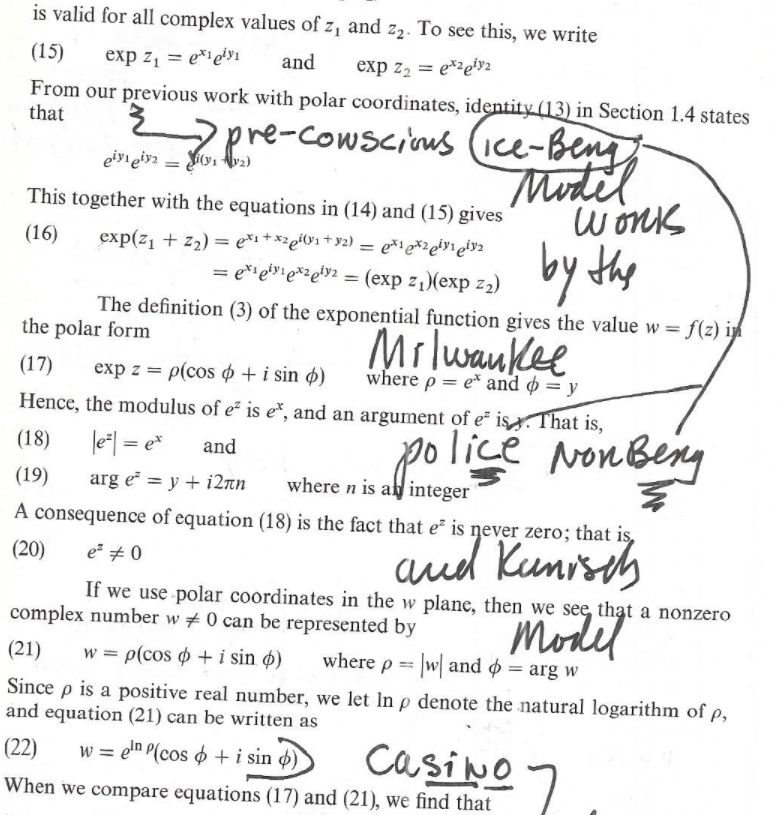 is valid for all complex values of z₁ and z₂. To see this, we write
(15) exp z₁ = e^{x₁}e^{iy₁} and exp z₂ = e^{x₂}e^{iy₂}
From our previous work with polar coordinates, identity (13) in Section 1.4 states
that
pre-conscious ice-Beng
e^{iy₁}e^{iy₂} = e^{i(y₁ + y₂)}
Model
This together with the equations in (14) and (15) gives
works
(16) exp(z₁ + z₂) = e^{x₁ + x₂}e^{i(y₁ + y₂)} = e^{x₁}e^{x₂}e^{iy₁}e^{iy₂}
by the
= e^{x₁}e^{iy₁}e^{x₂}e^{iy₂} = (exp z₁)(exp z₂)
The definition (3) of the exponential function gives the value w = f(z) in
the polar form
Milwaukee
(17) exp z = ρ(cos ϕ + i sin ϕ) where ρ = eˣ and ϕ = y
Hence, the modulus of e^z is eˣ, and an argument of e^z is y. That is,
(18) |e^z| = eˣ and
police NonBeng
(19) arg e^z = y + i2πn where n is an integer
A consequence of equation (18) is the fact that e^z is never zero; that is,
(20) e^z ≠ 0
and Kunisch
If we use polar coordinates in the w plane, then we see that a nonzero
complex number w ≠ 0 can be represented by
Model
(21) w = ρ(cos ϕ + i sin ϕ) where ρ = |w| and ϕ = arg w
Since ρ is a positive real number, we let ln ρ denote the natural logarithm of ρ,
and equation (21) can be written as
(22) w = e^{ln ρ}(cos ϕ + i sin ϕ)
Casino
When we compare equations (17) and (21), we find that